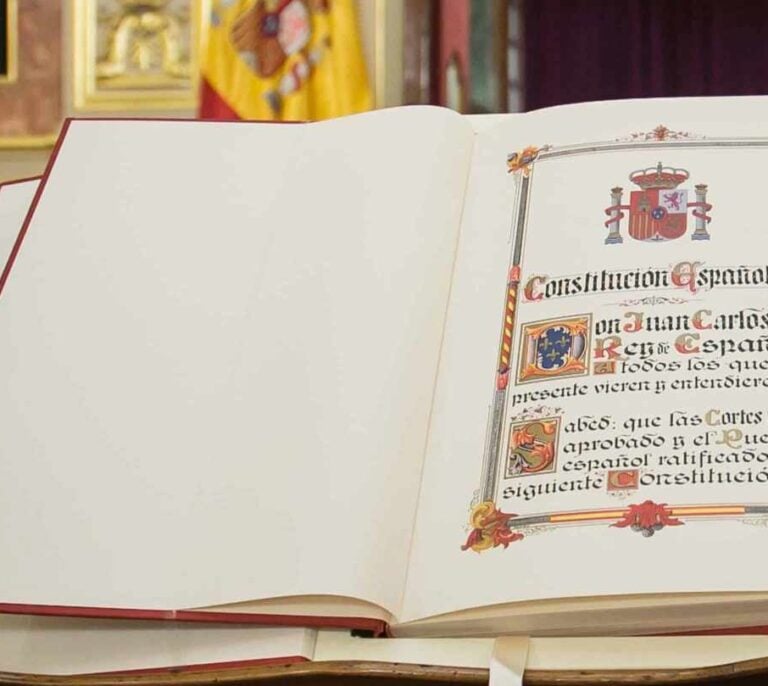 Constitución Español
Don Juan Carlos
Rey de Españ
a todos los que
presente vieren y entendiere
Sabed: que las Cortes
aprobado y el Pue
español ratificado
siguiente Constitució